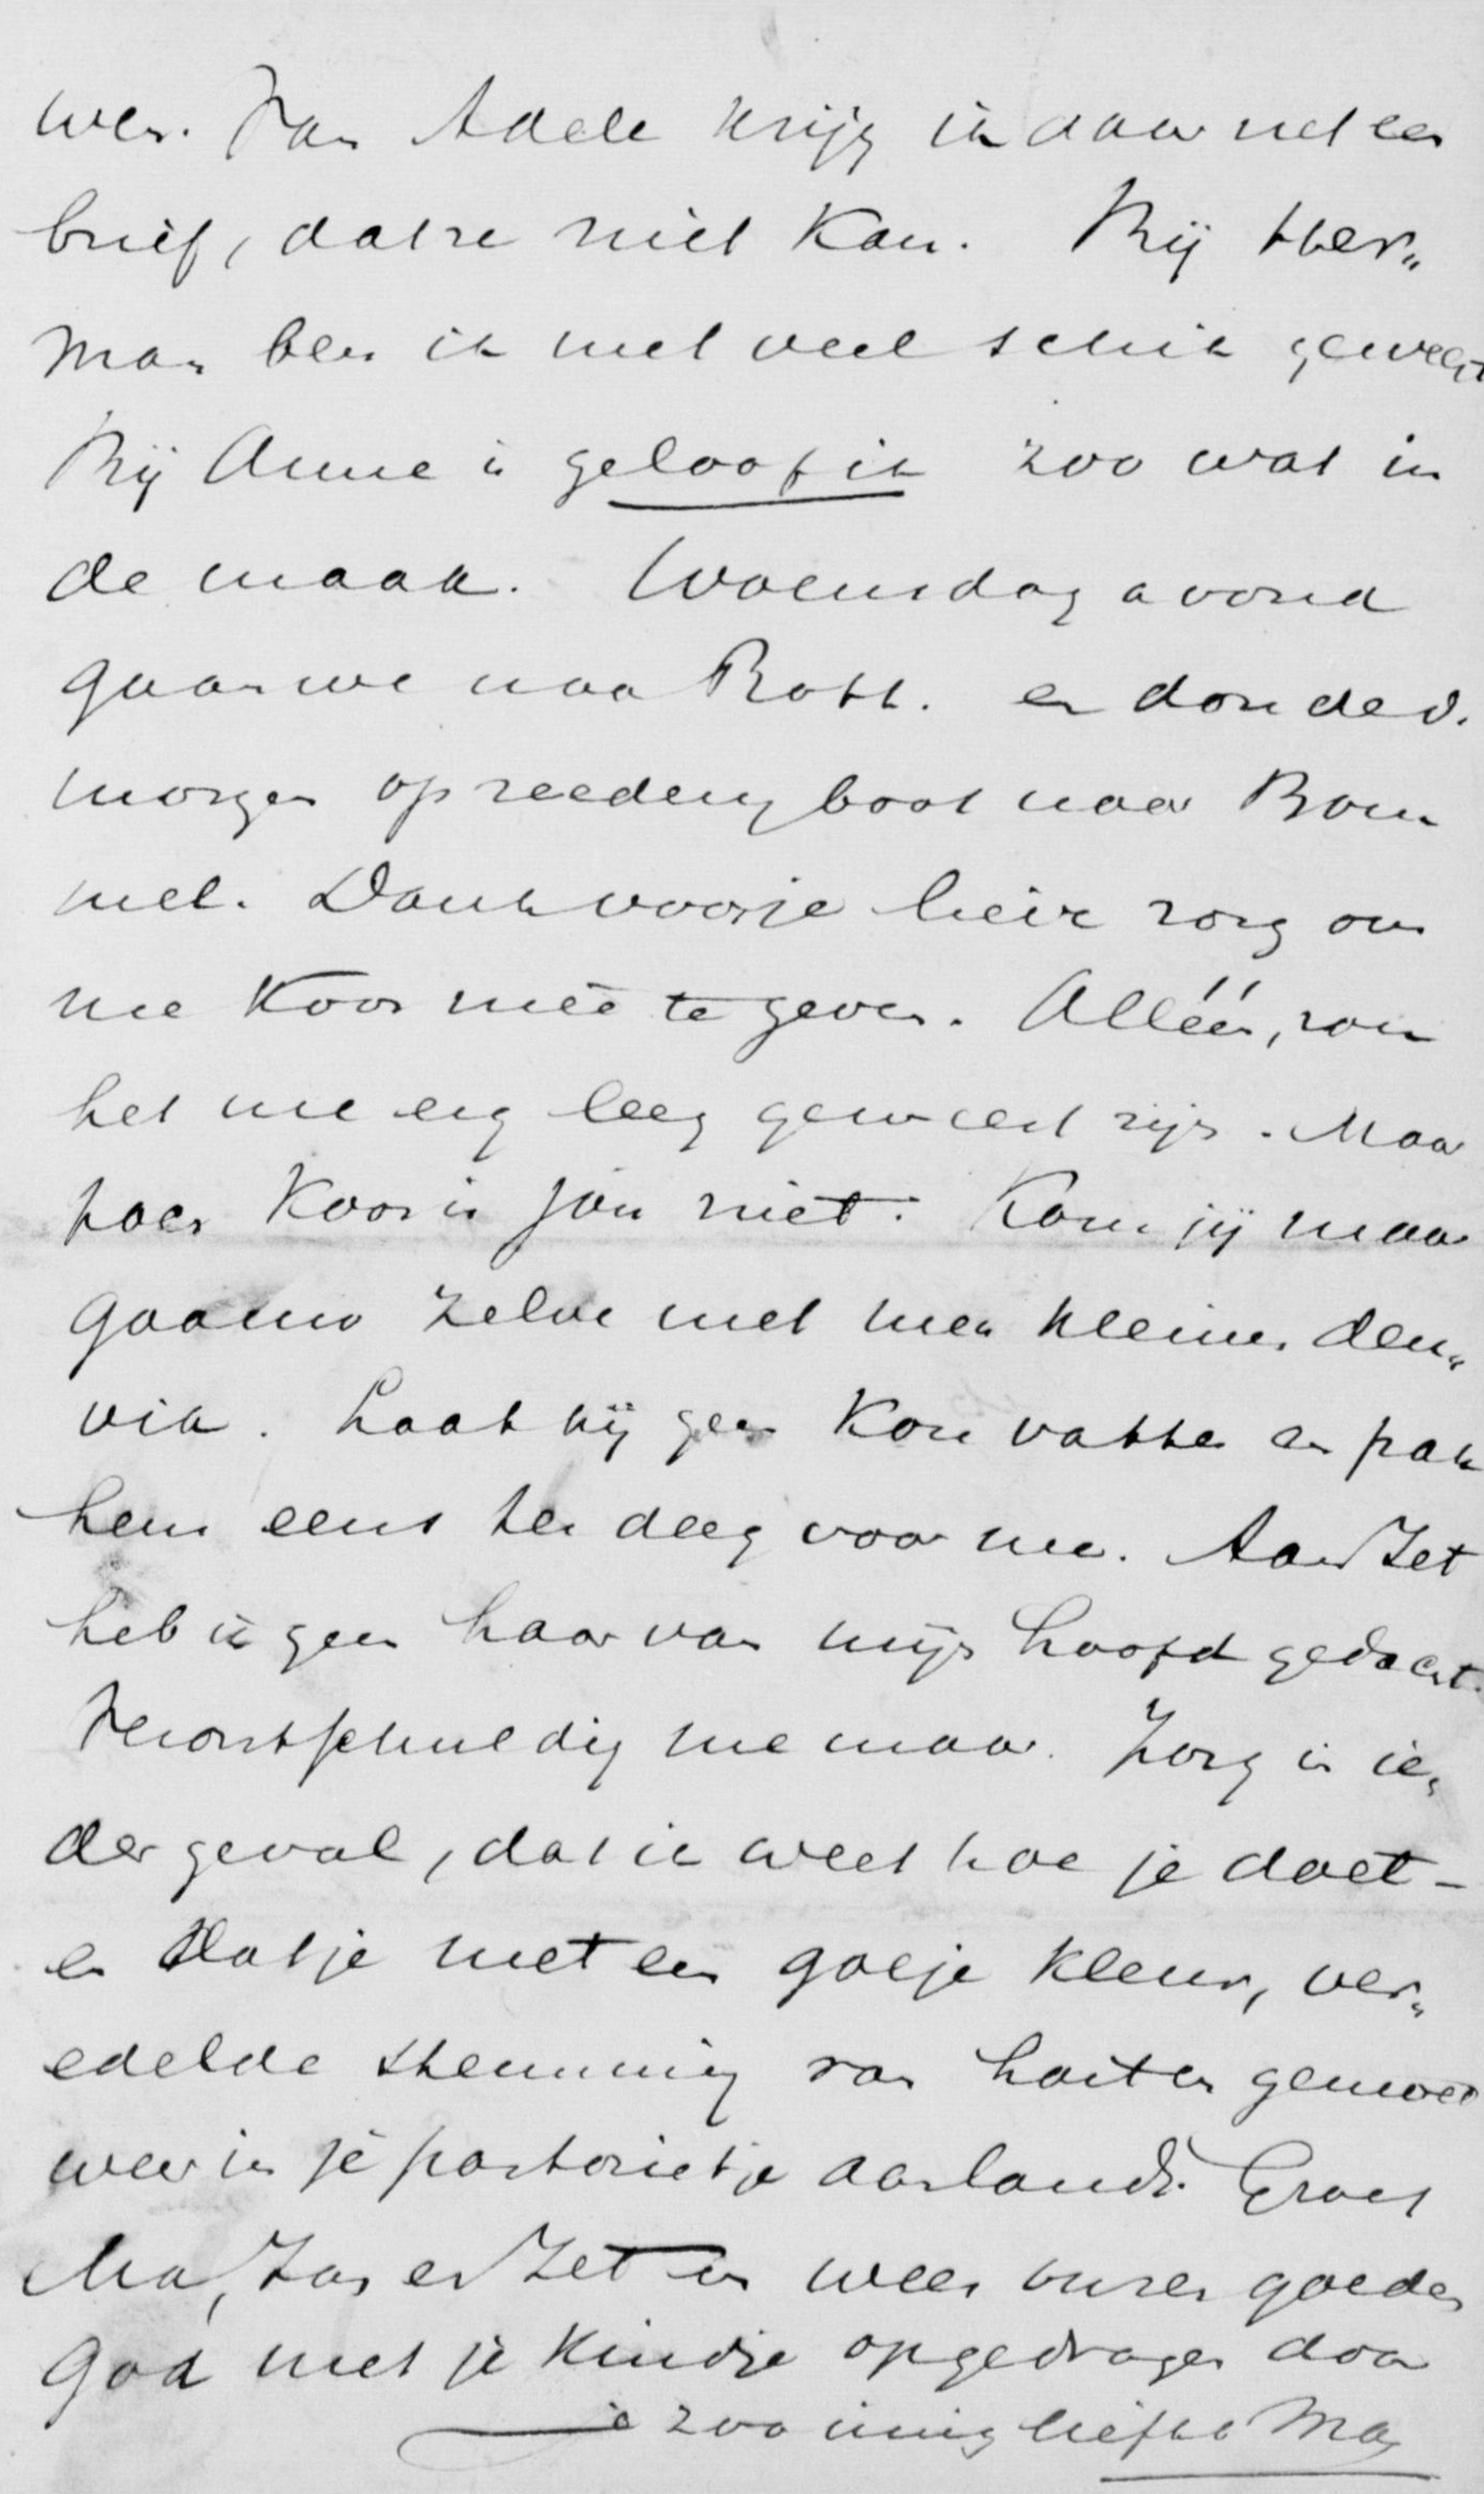 wen. Van Adele krijg ik daar net een
brief, dat ze niet kan. Bij Her„
man ben ik met veel schik geweest
Bij Anne is geloof ik zoo wat in
de maak. Woensdag avond
gaan we naa Rott. en donded.
morgen op reedery boot naar Bom
mel. Dank voor je lieve zorg om
me Koos meê te geven. Alléén, zou
het me erg leeg geweest zijn. Maar
poes Koos is jou niet. Kom jij maar
gaauw zelve met men kleinen den„
vik. Laat hij geen kou vatten en pak
hem eens ter deeg voor me. Aan Jet
heb ik geen haar van mijn hoofd gedacht.
Verontschuldig me maar. Zorg in ie„
der geval, dat ik weet hoe je doet –
en dat je met een goeje kleur, ver„
edelde stemming van hart en gemoed
weer in je pastorietje aanlandt. Groet
Ma, Jan en Jet en wees onzen goeden
God met je kindje opgedragen door
je zoo innig liefh Man